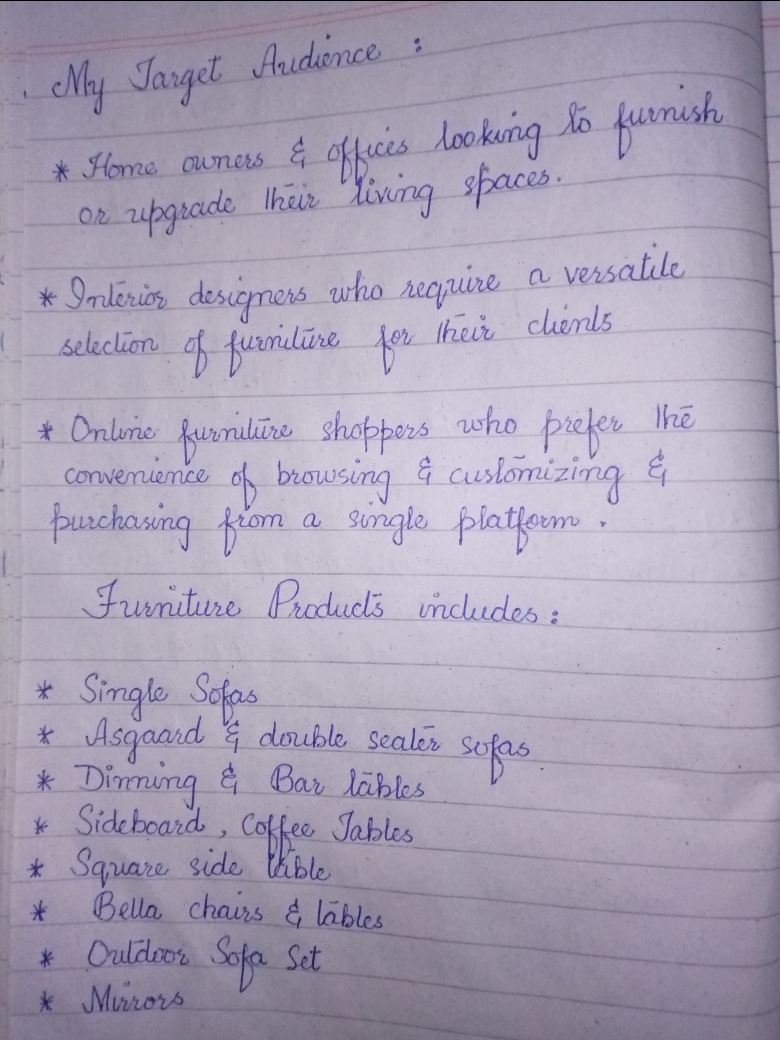 My Target Audience :
* Home owners & offices looking to furnish
or upgrade their living spaces.
* Interior designers who require a versatile
selection of furniture for their clients
* Online furniture shoppers who prefer the
convenience of browsing & customizing &
purchasing from a single platform.
Furniture Products includes :
* Single Sofas
* Asgaard & double seater sofas
* Dinning & Bar tables
* Sideboard, Coffee Tables
* Square side table
* Bella chairs & tables
* Outdoor Sofa Set
* Mirrors